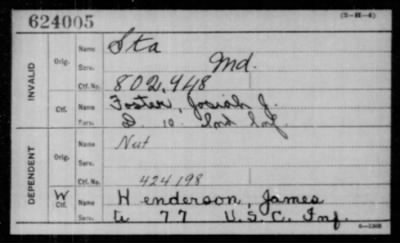 624005
(3-H-4)
INVALID
Orig. Name Sta
Serv. Md.
Ctf. No. 802,948
Ctf. Name Foster, Josiah J.
Serv. D 10. Ind. Inf.
DEPENDENT
Orig. Name Nut
Serv.
Ctf. No. 424198
W Ctf. Name Henderson, James
Serv. 77 U.S.C. Inf.